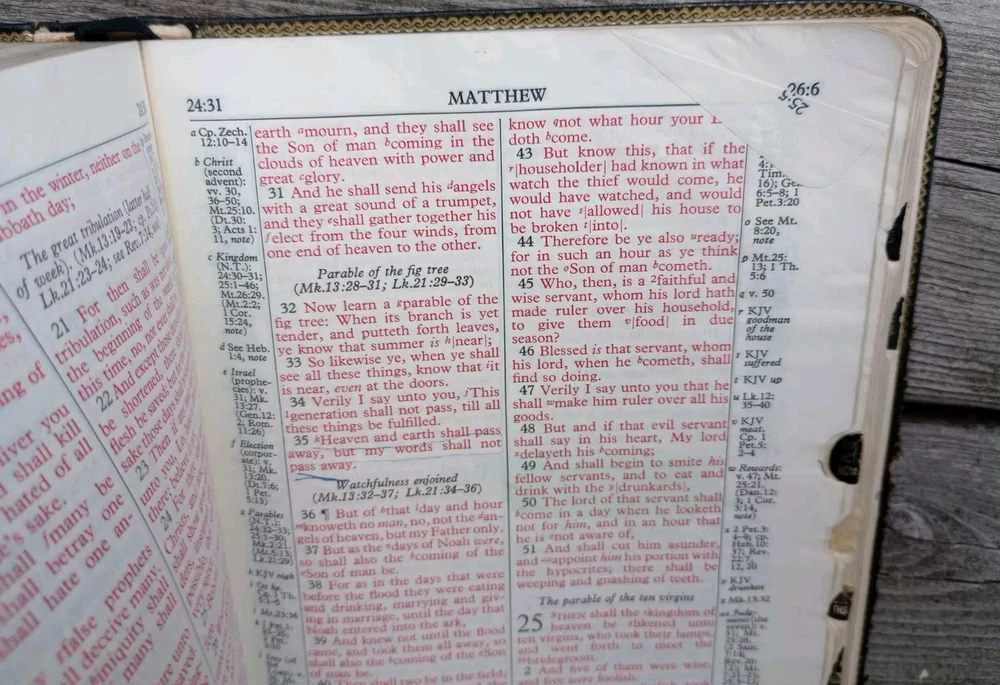 in the winter, neither on the
bbath day.
The great tribulation (latter half
of week). (Mk.13:19-23; cp.
Lk.21:23-24; see Rev.7:14,
21 For then shall be
tribulation, such as was
the beginning of the
this time, no, nor ever shall
22 And except those
shortened, there
flesh be saved; but
sake those days shall be
23 Then if
ing of
liver you
d shall kill
hated of all
's sake.
shall many be
betray one
hate one an-
false prophets
deceive many.
iniquity shall
24:31
MATTHEW
26:6
25:5
a Cp. Zech.
12:10–14
b Christ
(second
advent):
vv. 30,
36–50;
Mt.25:10.
(Dt.30:
3; Acts 1:
11, note)
c Kingdom
(N.T.):
24:30–31;
25:1–46;
Mt.26:29.
(Mt.2:2;
1 Cor.
15:24,
note)
d See Heb.
1:4, note
e Israel
(prophe-
cies): v.
31; Mk.
13:27.
(Gen.12:
2; Rom.
11:26)
f Election
(corpor-
ate): v.
31; Mk.
13:20.
(Dt.7:6;
1 Pet.
5:13)
g Parables
(N.T.):
24:32–33;
25:1–30;
Mk.2:21.
(Mt.5:13;
Lk.21:29)
h KJV nigh
earth amourn, and they shall see
the Son of man bcoming in the
clouds of heaven with power and
great cglory.
31 And he shall send his dangels
with a great sound of a trumpet,
and they eshall gather together his
felect from the four winds, from
one end of heaven to the other.
Parable of the fig tree
(Mk.13:28–31; Lk.21:29–33)
32 Now learn a gparable of the
fig tree: When its branch is yet
tender, and putteth forth leaves,
ye know that summer is h|near|;
33 So likewise ye, when ye shall
see all these things, know that iit
is near, even at the doors.
34 Verily I say unto you, jThis
1generation shall not pass, till all
these things be fulfilled.
35 kHeaven and earth shall pass
away, but my words shall not
pass away.
Watchfulness enjoined
(Mk.13:32–37; Lk.21:34–36)
36 ¶ But of bthat lday and hour
mknoweth no man, no, not the dan-
gels of heaven, but my Father only.
37 But as the ndays of Noah were,
so shall also the bcoming of the
oSon of man be.
38 For as in the days that were
before the flood they were eating
and drinking, marrying and giv-
ing in marriage, until the day that
Noah entered into the ark,
39 And knew not until the flood
came, and took them all away, so
shall also the bcoming of the oSon
of man be.
40 Then shall two be in the field;
know qnot what hour your L
doth bcome.
43 But know this, that if the
r|householder| had known in what
watch the thief would come, he
would have watched, and would
not have s|allowed| his house to
be broken t|into|.
44 Therefore be ye also uready;
for in such an hour as ye think
not the oSon of man bcometh.
45 Who, then, is a 2faithful and
wise servant, whom his lord hath
made ruler over his household,
to give them v|food| in due
season?
46 Blessed is that servant, whom
his lord, when he bcometh, shall
find so doing.
47 Verily I say unto you that he
shall wmake him ruler over all his
goods.
48 But and if that evil servant
shall say in his heart, My lord
xdelayeth his bcoming;
49 And shall begin to smite his
fellow servants, and to eat and
drink with the y|drunkards|,
50 The lord of that servant shall
bcome in a day when he looketh
not for him, and in an hour that
he is znot aware of,
51 And shall cut him asunder,
and aaappoint him his portion with
the hypocrites; there shall be
weeping and gnashing of teeth.
The parable of the ten virgins
25 THEN shall the ckingdom of
heaven be likened unto
ten virgins, who took their lamps,
and went forth to meet the
bridegroom.
2 And five of them were wise,
and five were foolish.
6:5–8; 1
Pet.3:20
o See Mt.
8:20,
note
p Mt.25:
13; 1 Th.
5:6
q v. 50
r KJV
goodman
of the
house
s KJV
suffered
t KJV up
u Lk.12:
35–40
v KJV
meat.
Cp. 1
Pet.5:
2–4
w Rewards:
v. 47; Mt.
25:21.
(Dan.12:
3; 1 Cor.
3:14,
note)
x 2 Pet.3:
4–9; cp.
Heb.10:
37; Rev.
22:7,
12, 20
y KJV
drunken
z Mk.13:32